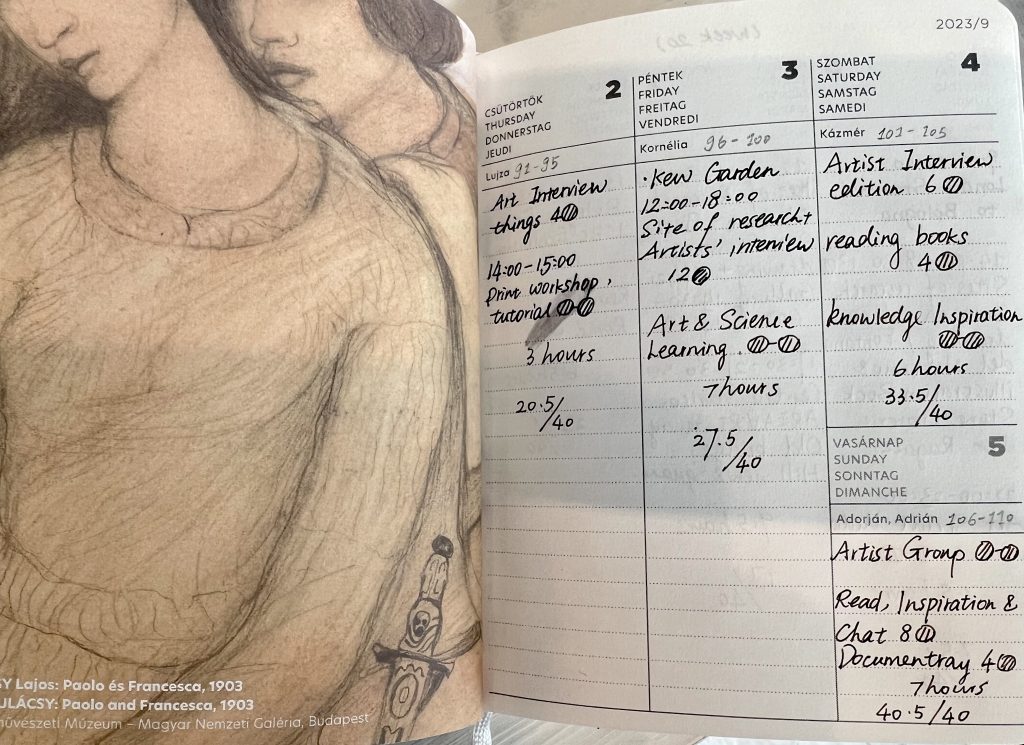 2023/9
CSÜTÖRTÖK
THURSDAY
DONNERSTAG
JEUDI
2
Lujza 91-95
Art Interview
things 4
14:00-15:00
Print workshop,
tutorial
3 hours
20.5/40
PÉNTEK
FRIDAY
FREITAG
VENDREDI
3
Kornélia 96-100
·Kew Garden
12:00-18:00
Site of research+
Artists' interview
12
Art & Science
Learning.
7 hours
27.5/40
SZOMBAT
SATURDAY
SAMSTAG
SAMEDI
4
Kázmér 101-105
Artist Interview
edition 6
reading books
4
knowledge Inspiration
6 hours
33.5/40
VASÁRNAP
SUNDAY
SONNTAG
DIMANCHE
5
Adorján, Adrián 106-110
Artist Group
Read, Inspiration &
Chat 8
Documentray 4
7 hours
40.5/40
SY Lajos: Paolo és Francesca, 1903
ULÁCSY: Paolo and Francesca, 1903
művészeti Múzeum – Magyar Nemzeti Galéria, Budapest